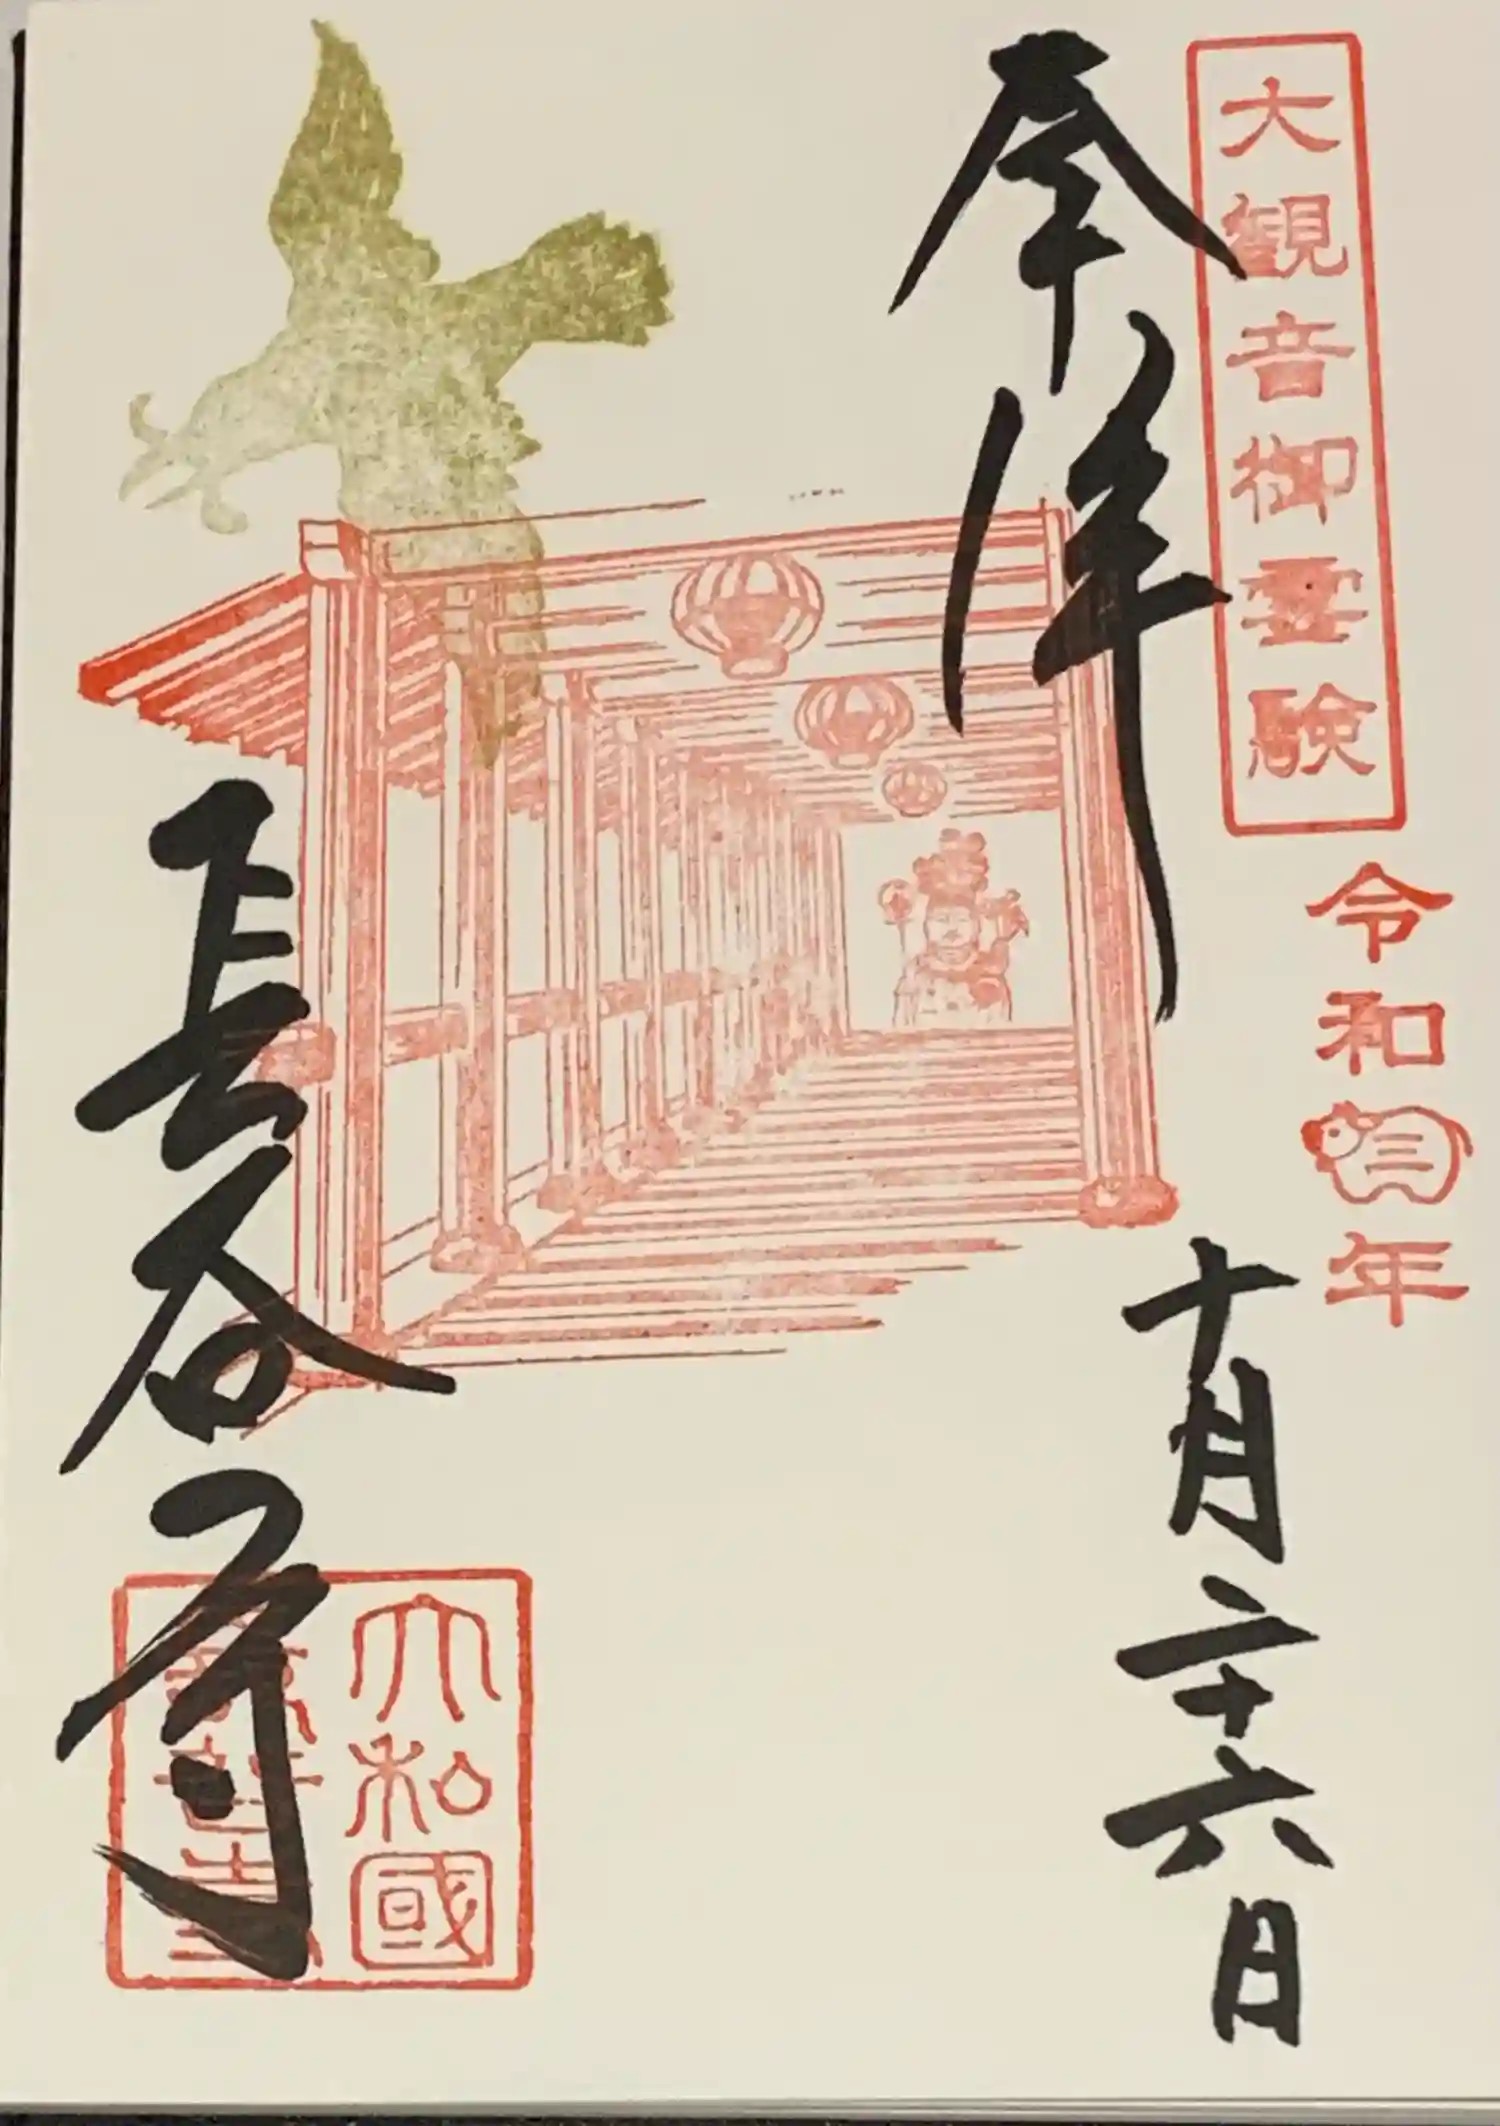 大観音御霊験
令和三年
十月二十六日
奉拝
長谷寺
大和國